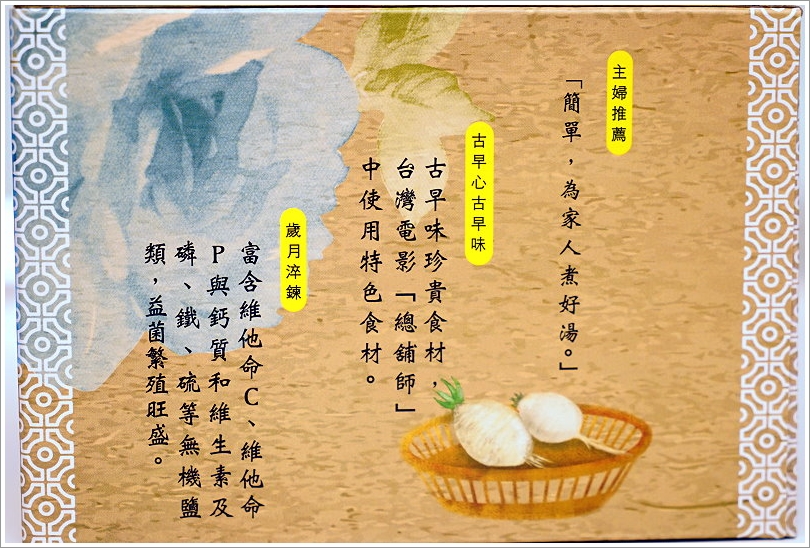 主婦推薦
「簡單，為家人煮好湯。」
古早心古早味
古早味珍貴食材，
台灣電影「總舖師」
中使用特色食材。
歲月淬鍊
富含維他命C、維他命
P與鈣質和維生素及
磷、鐵、硫等無機鹽
類，益菌繁殖旺盛。